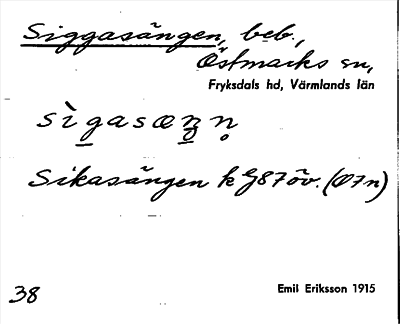 Siggasängen, beb.,
Östmarks sn,
Fryksdals hd, Värmlands län
Sikasängen k G87öv. (Ö7n)
38
Emil Eriksson 1915